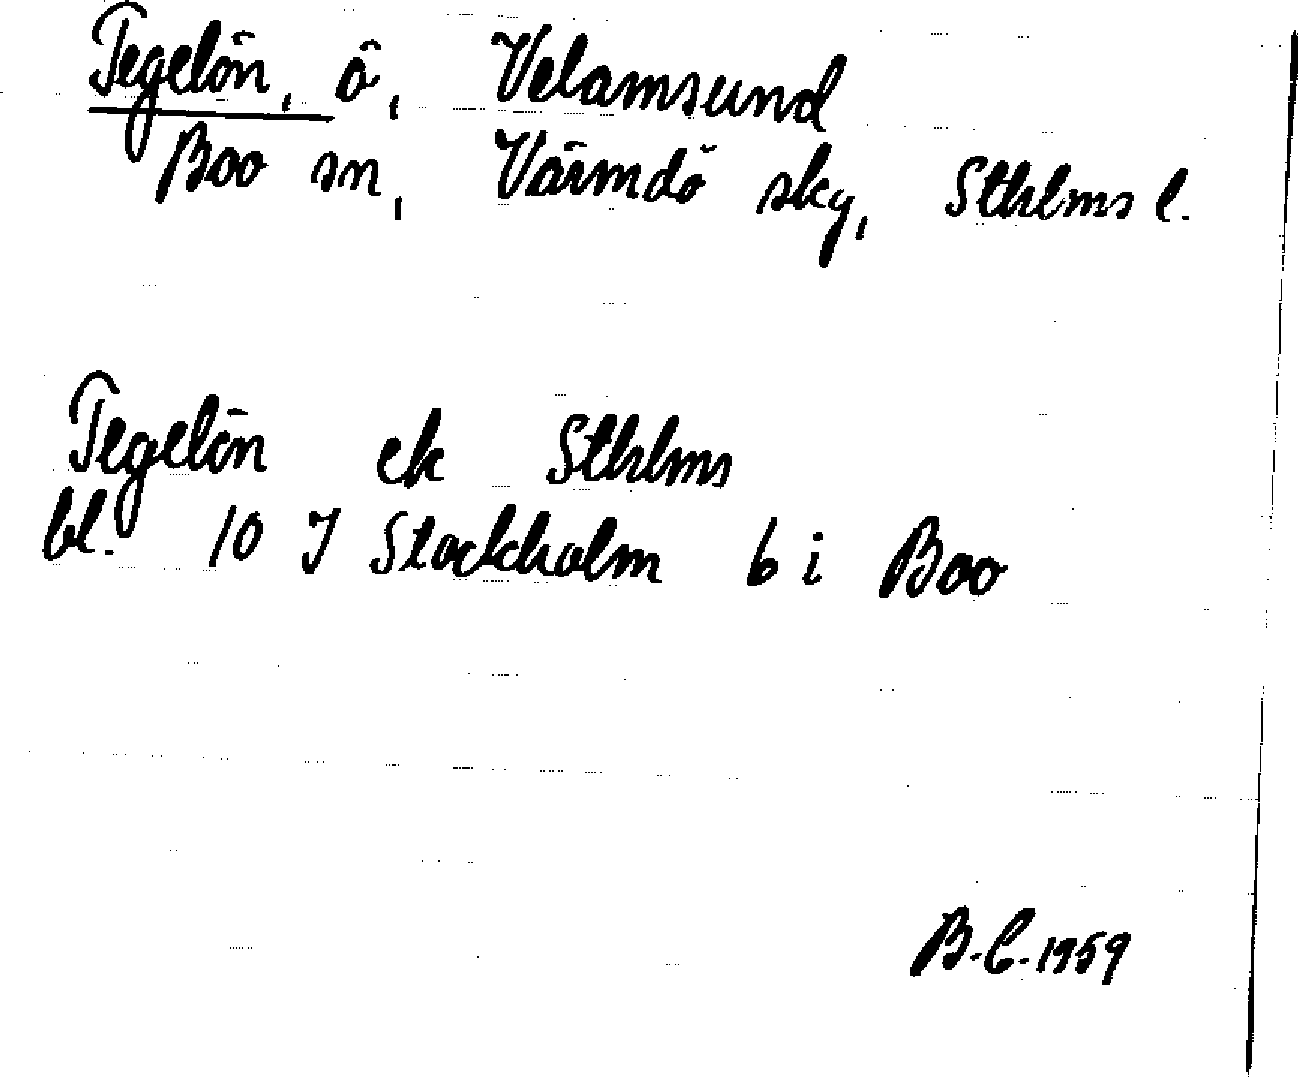 Tegelön, ö, Velamsund
Boo sn, Värmdö skg, Sthlms l.
Tegelön ek Sthlms
bl. 10 I Stockholm 6 i Boo
B.C. 1959